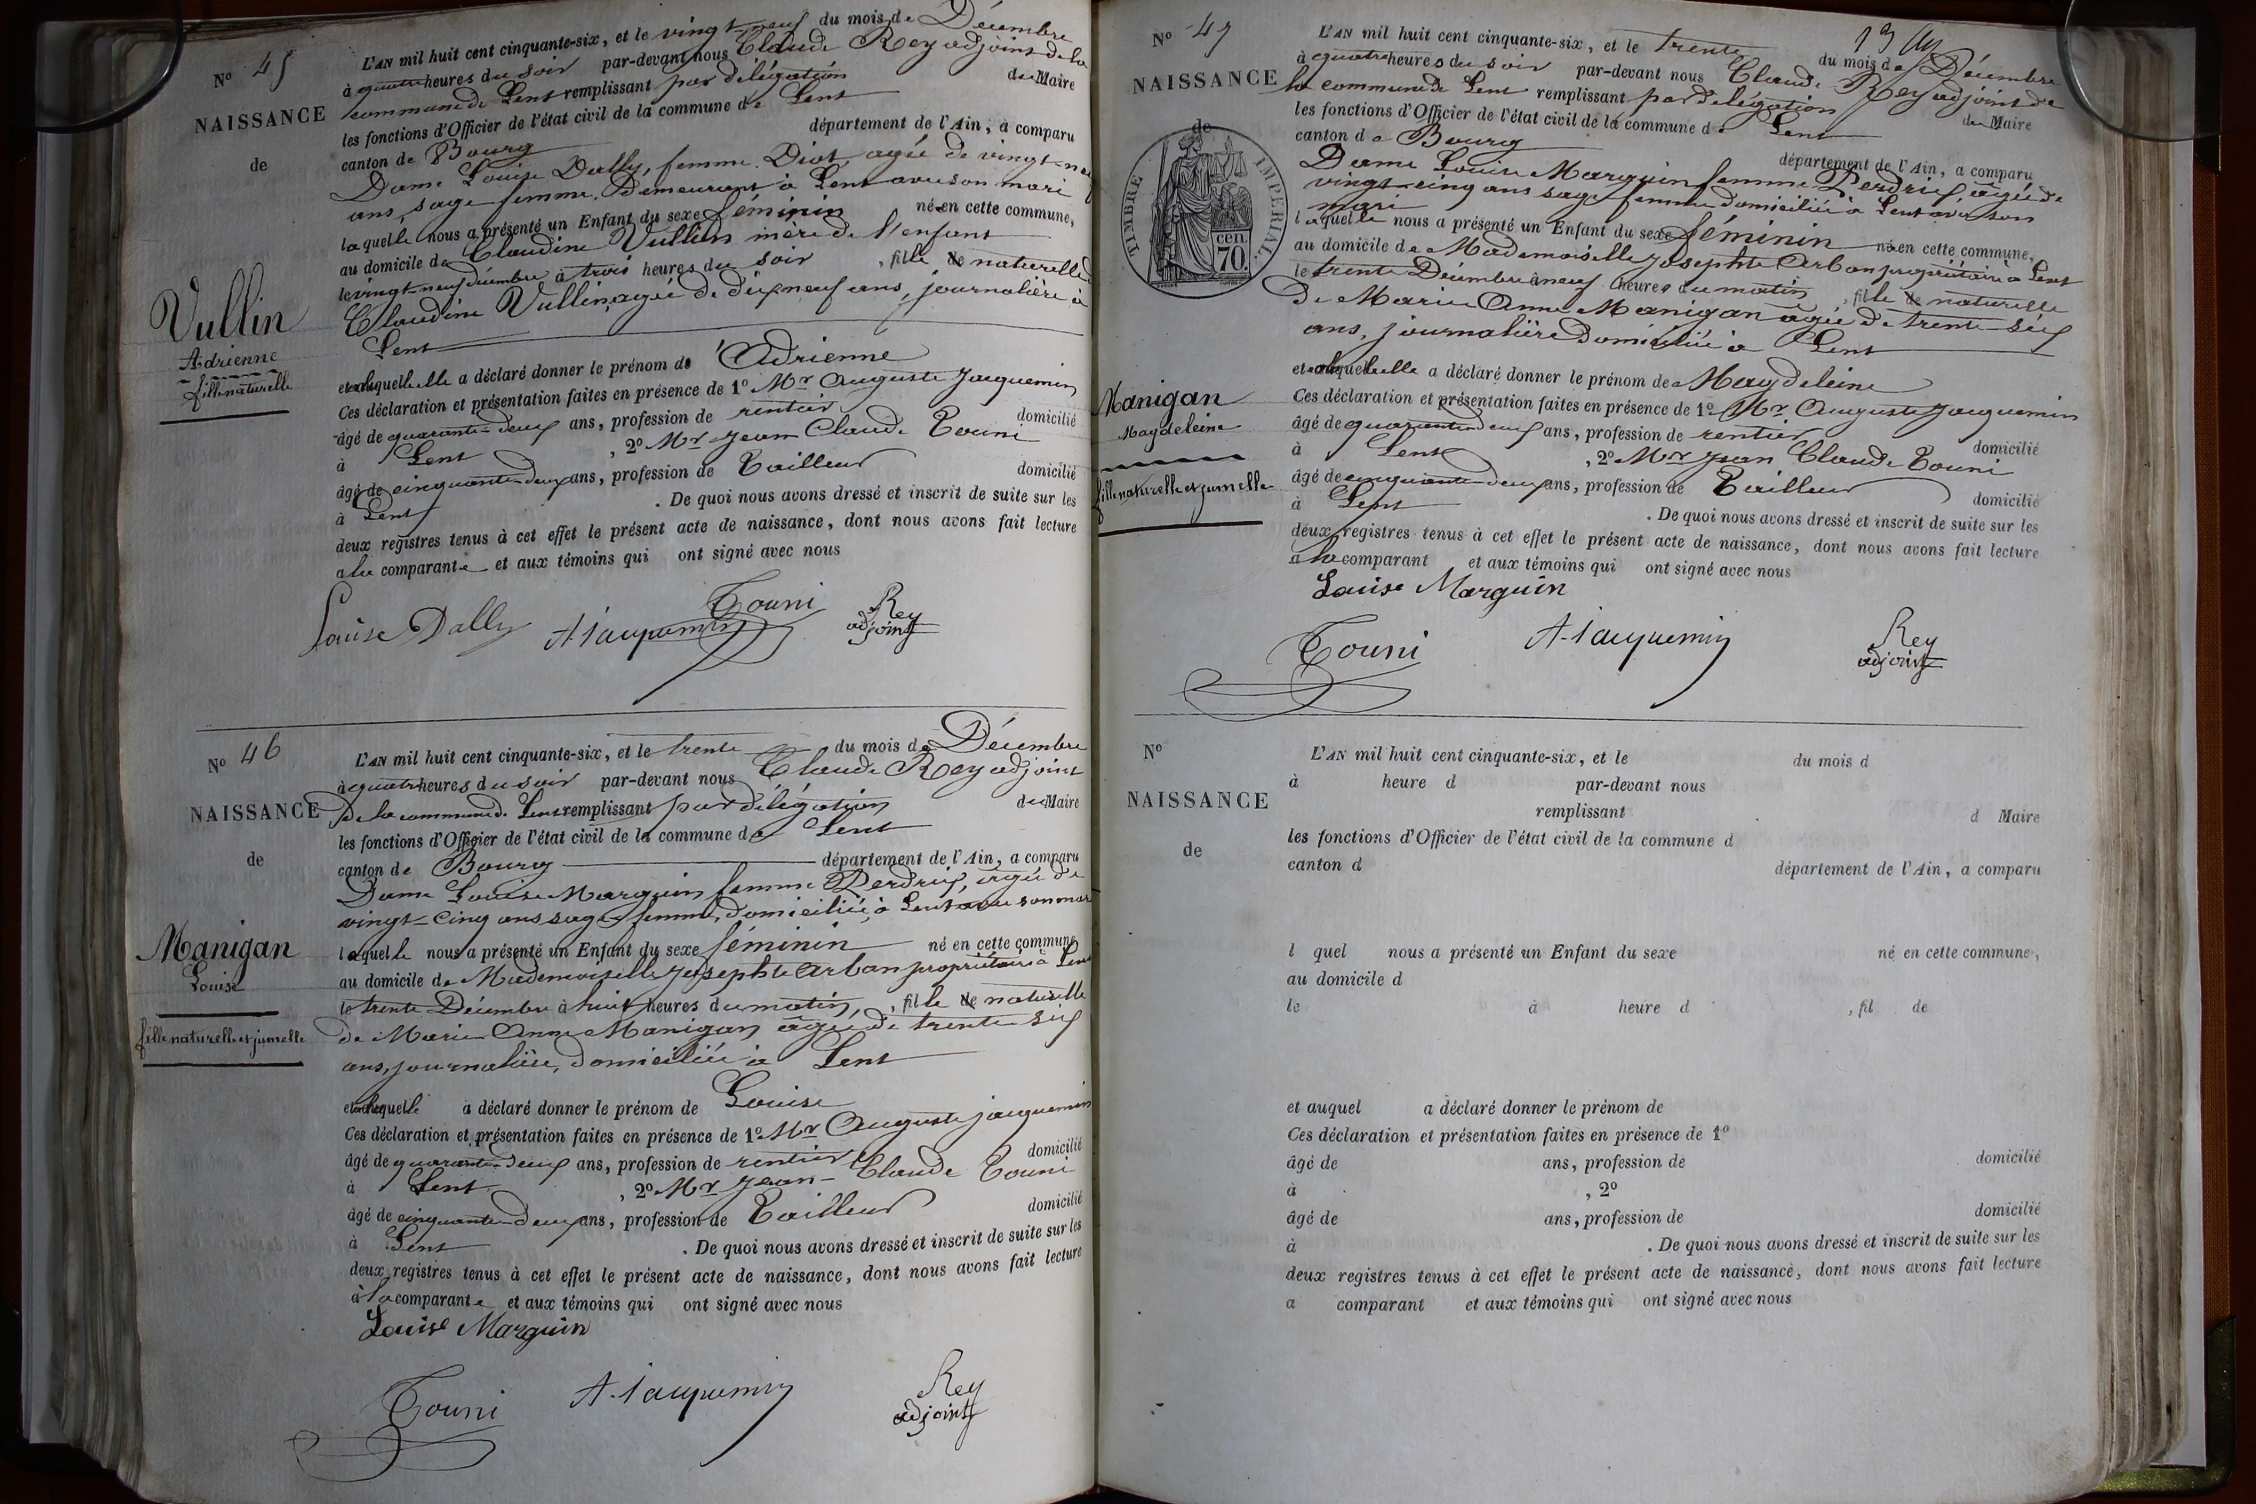 N° 45
NAISSANCE
de
Vullin
Adrienne
fille naturelle
L'AN mil huit cent cinquante-six, et le vingt-neuf du mois de Décembre
à quatre heures du soir par-devant nous Claude Rey adjoint de la
commune de Lent remplissant par délégation du Maire
les fonctions d'Officier de l'état civil de la commune de Lent
canton de Bourg département de l'Ain, a comparu
Dame Louise Dally, femme Diot, agée de vingt-neuf
ans, sage femme, Demeurant à Lent avec son mari
laquelle nous a présenté un Enfant du sexe féminin né en cette commune,
au domicile de Claudine Vullin mère de l'enfant
le vingt-neuf décembre à trois heures du soir, fille de naturelle de
Claudine Vullin, agée de dix neuf ans, journalière à
Lent
et à laquelle elle a déclaré donner le prénom de Adrienne
Ces déclaration et présentation faites en présence de 1° Mr Auguste Jacquemin
âgé de quarante-deux ans, profession de rentier domicilié
à Lent, 2° Mr Jean Claude Touni
âgé de cinquante-deux ans, profession de Tailleur domicilié
à Lent. De quoi nous avons dressé et inscrit de suite sur les
deux registres tenus à cet effet le présent acte de naissance, dont nous avons fait lecture
a la comparante et aux témoins qui ont signé avec nous
Louise Dally A Jacquemin Touni Rey
adjoint
N° 46
NAISSANCE
de
Manigan
Louise
fille naturelle et jumelle
L'AN mil huit cent cinquante-six, et le trente du mois de Décembre
à quatre heures du soir par-devant nous Claude Rey adjoint
De la commune de Lent remplissant par délégation du Maire
les fonctions d'Officier de l'état civil de la commune de Lent
canton de Bourg département de l'Ain, a comparu
Dame Louise Marguin femme Perdrix, agée de
vingt-cinq ans sage-femme, domiciliée à Lent avec son mari
laquelle nous a présenté un Enfant du sexe féminin né en cette commune
au domicile de Mademoiselle Josephte Arban propriétaire à Lent
le trente Décembre à huit heures du matin, fille de naturelle
de Marie Anne Manigan agée de trente six
ans, journalière, domiciliée à Lent
et à laquelle a déclaré donner le prénom de Louise
Ces déclaration et présentation faites en présence de 1° Mr Auguste Jacquemin
âgé de quarante-deux ans, profession de rentier domicilié
à Lent, 2° Mr Jean-Claude Touni
âgé de cinquante-deux ans, profession de Tailleur domicilié
à Lent. De quoi nous avons dressé et inscrit de suite sur les
deux registres tenus à cet effet le présent acte de naissance, dont nous avons fait lecture
à la comparante et aux témoins qui ont signé avec nous
Louise Marguin
Touni A. Jacquemin Rey
adjoint
N° 47
NAISSANCE
de
TIMBRE IMPÉRIAL
cen.
70.
Manigan
Magdeleine
fille naturelle et jumelle
L'AN mil huit cent cinquante-six, et le trente du mois de Décembre
à quatre heures du soir par-devant nous Claude Rey adjoint de
la commune de Lent remplissant par délégation du Maire
les fonctions d'Officier de l'état civil de la commune de Lent
canton de Bourg département de l'Ain, a comparu
Dame Louise Marguin femme Perdrix, agée de
vingt-cinq ans sage femme domiciliée à Lent avec son
mari
laquelle nous a présenté un Enfant du sexe féminin né en cette commune,
au domicile de Mademoiselle Josephte Arban propriétaire à Lent
le trente Décembre à neuf heures du matin, fille de naturelle
De Marie Anne Manigan agée de trente-six
ans, journalière domiciliée à Lent
et à laquelle elle a déclaré donner le prénom de Magdeleine
Ces déclaration et présentation faites en présence de 1° Mr Auguste Jacquemin
âgé de quarante-deux ans, profession de rentier domicilié
à Lent, 2° Mr Jean Claude Touni
âgé de cinquante-deux ans, profession de Tailleur domicilié
à Lent. De quoi nous avons dressé et inscrit de suite sur les
deux registres tenus à cet effet le présent acte de naissance, dont nous avons fait lecture
a la comparant et aux témoins qui ont signé avec nous
Louise Marguin
Touni A. Jacquemin Rey
adjoint
N°
NAISSANCE
de
L'AN mil huit cent cinquante-six, et le du mois d
à heure d par-devant nous
remplissant d Maire
les fonctions d'Officier de l'état civil de la commune d
canton d département de l'Ain, a comparu
l quel nous a présenté un Enfant du sexe né en cette commune,
au domicile d
le à heure d , fil de
et auquel a déclaré donner le prénom de
Ces déclaration et présentation faites en présence de 1°
âgé de ans, profession de domicilié
à , 2°
âgé de ans, profession de domicilié
à . De quoi nous avons dressé et inscrit de suite sur les
deux registres tenus à cet effet le présent acte de naissance, dont nous avons fait lecture
a comparant et aux témoins qui ont signé avec nous